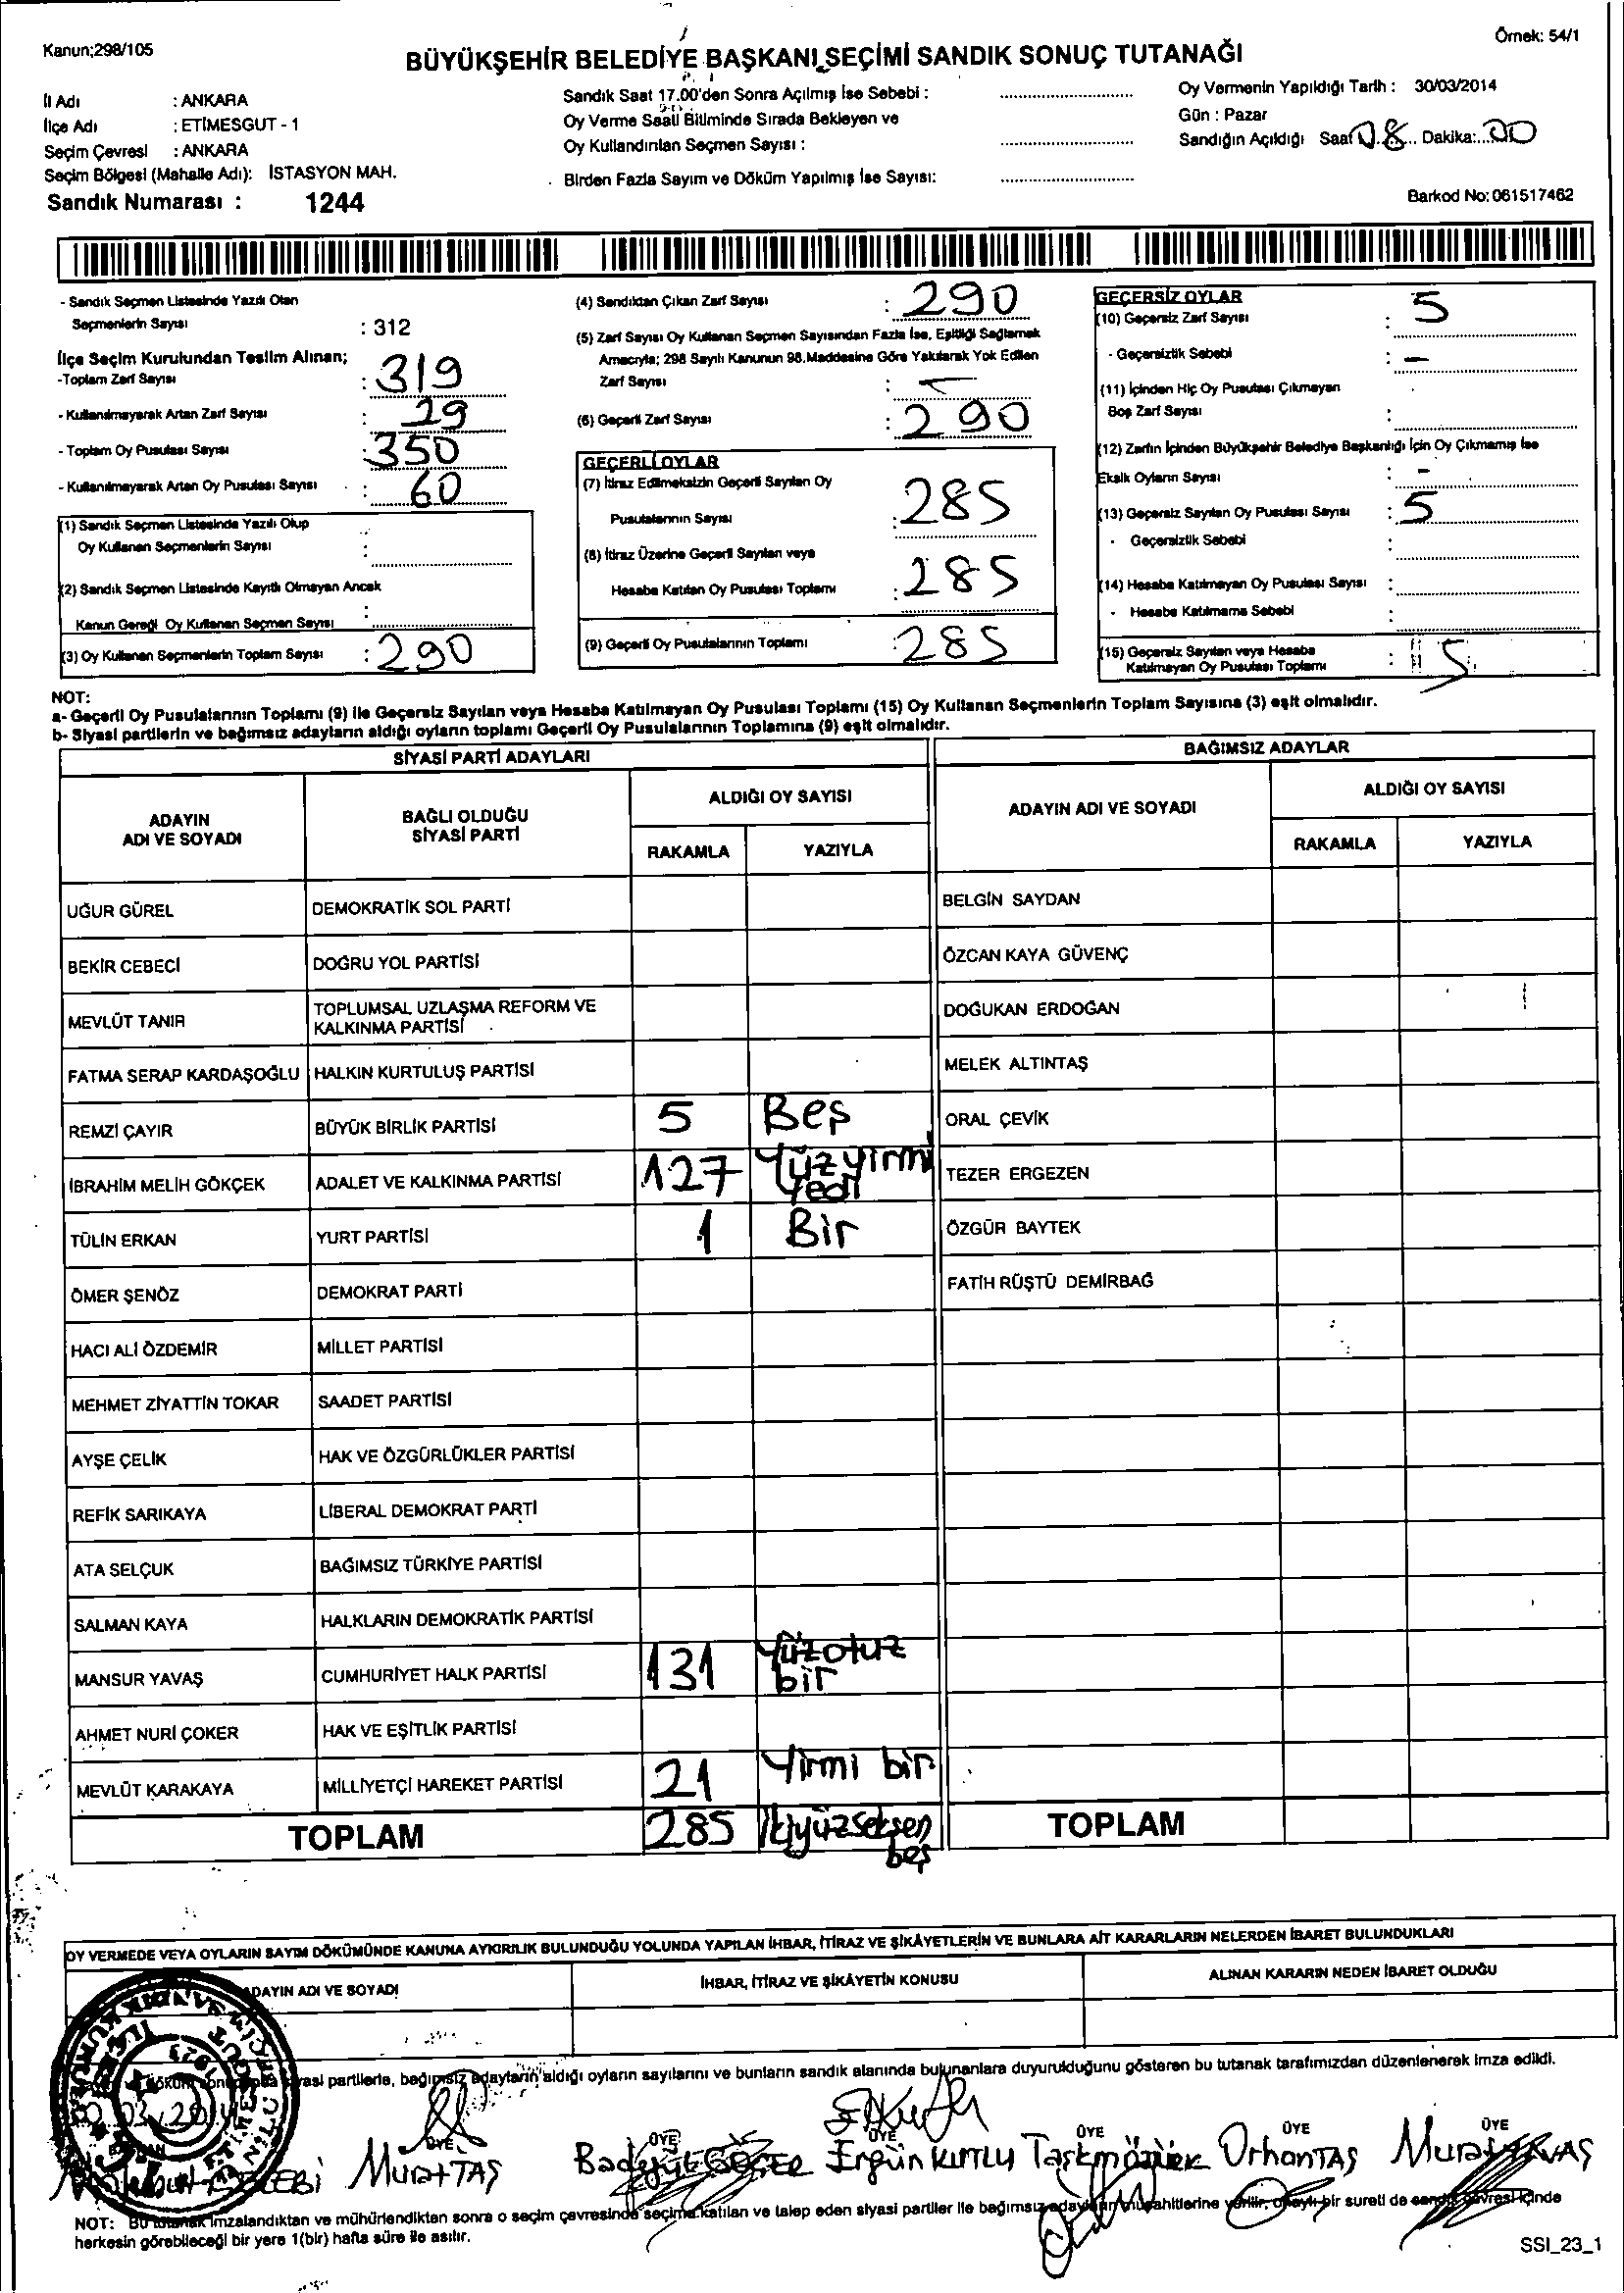 Kanun;298/105
Örnek: 54/1
BÜYÜKŞEHİR BELEDİYE BAŞKANI SEÇİMİ SANDIK SONUÇ TUTANAĞI
İl Adı : ANKARA
İlçe Adı : ETİMESGUT - 1
Seçim Çevresi : ANKARA
Seçim Bölgesi (Mahalle Adı): İSTASYON MAH.
Sandık Numarası : 1244
Sandık Saat 17.00'den Sonra Açılmış İse Sebebi :
Oy Verme Saati Bitiminde Sırada Bekleyen ve
Oy Kullandırılan Seçmen Sayısı :
Birden Fazla Sayım ve Döküm Yapılmış İse Sayısı:
Oy Vermenin Yapıldığı Tarih : 30/03/2014
Gün : Pazar
Sandığın Açıldığı Saat 08 Dakika: 00
Barkod No: 061517462
- Sandık Seçmen Listesinde Yazılı Olan
Seçmenlerin Sayısı : 312
İlçe Seçim Kurulundan Teslim Alınan;
-Toplam Zarf Sayısı : 319
- Kullanılmayarak Artan Zarf Sayısı : 29
- Toplam Oy Pusulası Sayısı : 350
- Kullanılmayarak Artan Oy Pusulası Sayısı : 60
(1) Sandık Seçmen Listesinde Yazılı Olup
Oy Kullanan Seçmenlerin Sayısı :
(2) Sandık Seçmen Listesinde Kayıtlı Olmayan Ancak
Kanun Gereği Oy Kullanan Seçmen Sayısı :
(3) Oy Kullanan Seçmenlerin Toplam Sayısı : 290
(4) Sandıktan Çıkan Zarf Sayısı : 290
(5) Zarf Sayısı Oy Kullanan Seçmen Sayısından Fazla İse, Eşitliği Sağlamak
Amacıyla; 298 Sayılı Kanunun 98.Maddesine Göre Yakılarak Yok Edilen
Zarf Sayısı : -
(6) Geçerli Zarf Sayısı : 290
GEÇERLİ OYLAR
(7) İtiraz Edilmeksizin Geçerli Sayılan Oy
Pusulalarının Sayısı : 285
(8) İtiraz Üzerine Geçerli Sayılan veya
Hesaba Katılan Oy Pusulası Toplamı : 285
(9) Geçerli Oy Pusulalarının Toplamı : 285
GEÇERSİZ OYLAR
(10) Geçersiz Zarf Sayısı : 5
- Geçersizlik Sebebi : -
(11) İçinden Hiç Oy Pusulası Çıkmayan
Boş Zarf Sayısı :
(12) Zarfın İçinden Büyükşehir Belediye Başkanlığı İçin Oy Çıkmamış İse
Eksik Oyların Sayısı : -
(13) Geçersiz Sayılan Oy Pusulası Sayısı : 5
- Geçersizlik Sebebi :
(14) Hesaba Katılmayan Oy Pusulası Sayısı :
- Hesaba Katılmama Sebebi :
(15) Geçersiz Sayılan veya Hesaba
Katılmayan Oy Pusulası Toplamı : 5
NOT:
a- Geçerli Oy Pusulalarının Toplamı (9) ile Geçersiz Sayılan veya Hesaba Katılmayan Oy Pusulası Toplamı (15) Oy Kullanan Seçmenlerin Toplam Sayısına (3) eşit olmalıdır.
b- Siyasi partilerin ve bağımsız adayların aldığı oyların toplamı Geçerli Oy Pusulalarının Toplamına (9) eşit olmalıdır.
SİYASİ PARTİ ADAYLARI
ADAYIN
ADI VE SOYADI
BAĞLI OLDUĞU
SİYASİ PARTİ
ALDIĞI OY SAYISI
RAKAMLA YAZIYLA
UĞUR GÜREL DEMOKRATİK SOL PARTİ
BEKİR CEBECİ DOĞRU YOL PARTİSİ
MEVLÜT TANIR TOPLUMSAL UZLAŞMA REFORM VE
KALKINMA PARTİSİ
FATMA SERAP KARDAŞOĞLU HALKIN KURTULUŞ PARTİSİ
REMZİ ÇAYIR BÜYÜK BİRLİK PARTİSİ 5 Beş
İBRAHİM MELİH GÖKÇEK ADALET VE KALKINMA PARTİSİ 127 Yüzyirmi
Yedi
TÜLİN ERKAN YURT PARTİSİ 1 Bir
ÖMER ŞENÖZ DEMOKRAT PARTİ
HACI ALİ ÖZDEMİR MİLLET PARTİSİ
MEHMET ZİYATTİN TOKAR SAADET PARTİSİ
AYŞE ÇELİK HAK VE ÖZGÜRLÜKLER PARTİSİ
REFİK SARIKAYA LİBERAL DEMOKRAT PARTİ
ATA SELÇUK BAĞIMSIZ TÜRKİYE PARTİSİ
SALMAN KAYA HALKLARIN DEMOKRATİK PARTİSİ
MANSUR YAVAŞ CUMHURİYET HALK PARTİSİ 131 Yüzotuz
bir
AHMET NURİ ÇOKER HAK VE EŞİTLİK PARTİSİ
MEVLÜT KARAKAYA MİLLİYETÇİ HAREKET PARTİSİ 21 Yirmi bir
TOPLAM 285 İkiyüzseksen
beş
BAĞIMSIZ ADAYLAR
ADAYIN ADI VE SOYADI
ALDIĞI OY SAYISI
RAKAMLA YAZIYLA
BELGİN SAYDAN
ÖZCAN KAYA GÜVENÇ
DOĞUKAN ERDOĞAN
MELEK ALTINTAŞ
ORAL ÇEVİK
TEZER ERGEZEN
ÖZGÜR BAYTEK
FATİH RÜŞTÜ DEMİRBAĞ
TOPLAM
OY VERMEDE VEYA OYLARIN SAYIM DÖKÜMÜNDE KANUNA AYKIRILIK BULUNDUĞU YOLUNDA YAPILAN İHBAR, İTİRAZ VE ŞİKÂYETLERİN VE BUNLARA AİT KARARLARIN NELERDEN İBARET BULUNDUKLARI
ADAYIN ADI VE SOYADI İHBAR, İTİRAZ VE ŞİKÂYETİN KONUSU ALINAN KARARIN NEDEN İBARET OLDUĞU
siyasi partilerle, bağımsız adayların aldığı oyların sayılarını ve bunların sandık alanında bulunanlara duyurulduğunu gösteren bu tutanak tarafımızdan düzenlenerek imza edildi.
ÜYE ÜYE ÜYE ÜYE ÜYE ÜYE
Murat TAŞ Ergün KUTLU Orhan TAŞ Murat
NOT: Bu tutanak imzalandıktan ve mühürlendikten sonra o seçim çevresinde seçime katılan ve talep eden siyasi partiler ile bağımsız aday müşahitlerine verilir, onaylı bir sureti de sandık çevresi içinde
herkesin görebileceği bir yere 1(bir) hafta süre ile asılır.
SSI_23_1